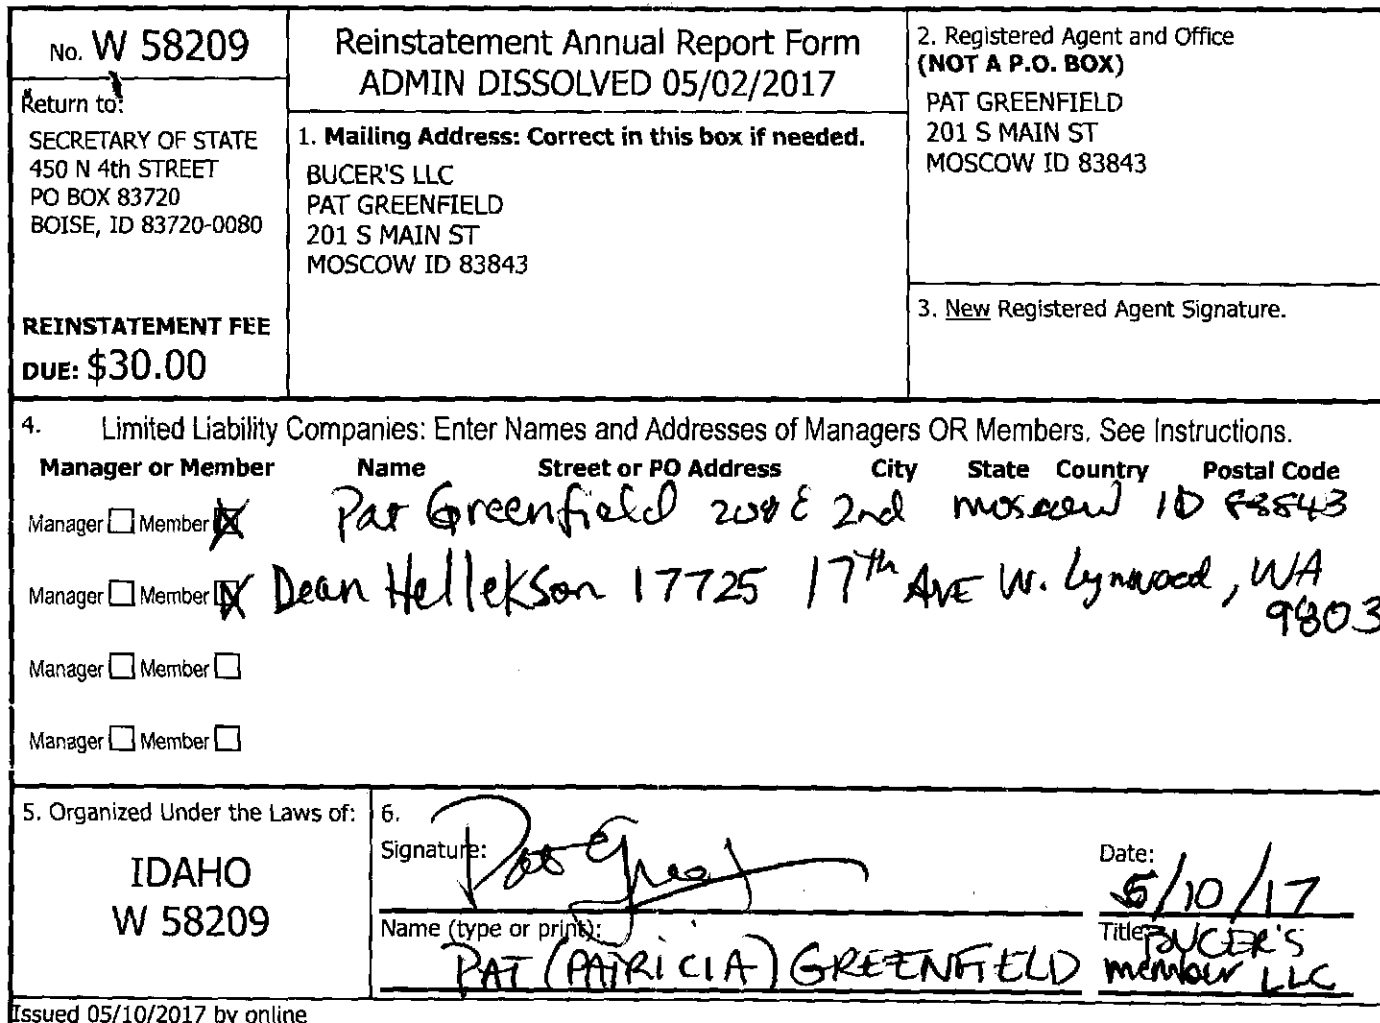 No. W 58209
Return to:
SECRETARY OF STATE
450 N 4th STREET
PO BOX 83720
BOISE, ID 83720-0080
REINSTATEMENT FEE
DUE: $30.00
Reinstatement Annual Report Form
ADMIN DISSOLVED 05/02/2017
1. Mailing Address: Correct in this box if needed.
BUCER'S LLC
PAT GREENFIELD
201 S MAIN ST
MOSCOW ID 83843
2. Registered Agent and Office
(NOT A P.O. BOX)
PAT GREENFIELD
201 S MAIN ST
MOSCOW ID 83843
3. New Registered Agent Signature.
4. Limited Liability Companies: Enter Names and Addresses of Managers OR Members. See Instructions.
Manager or Member Name Street or PO Address City State Country Postal Code
Manager Member Pat Greenfield E 2nd moscow ID 83843
Manager Member Dean Hellekson 17725 17th AVE W. Lynwood, WA
9803
Manager Member
Manager Member
5. Organized Under the Laws of:
IDAHO
W 58209
6.
Signature:
Date:
5/10/17
Name (type or print):
PAT (PATRICIA) GREENFIELD
Title: BUCER'S
member LLC
Issued 05/10/2017 by online